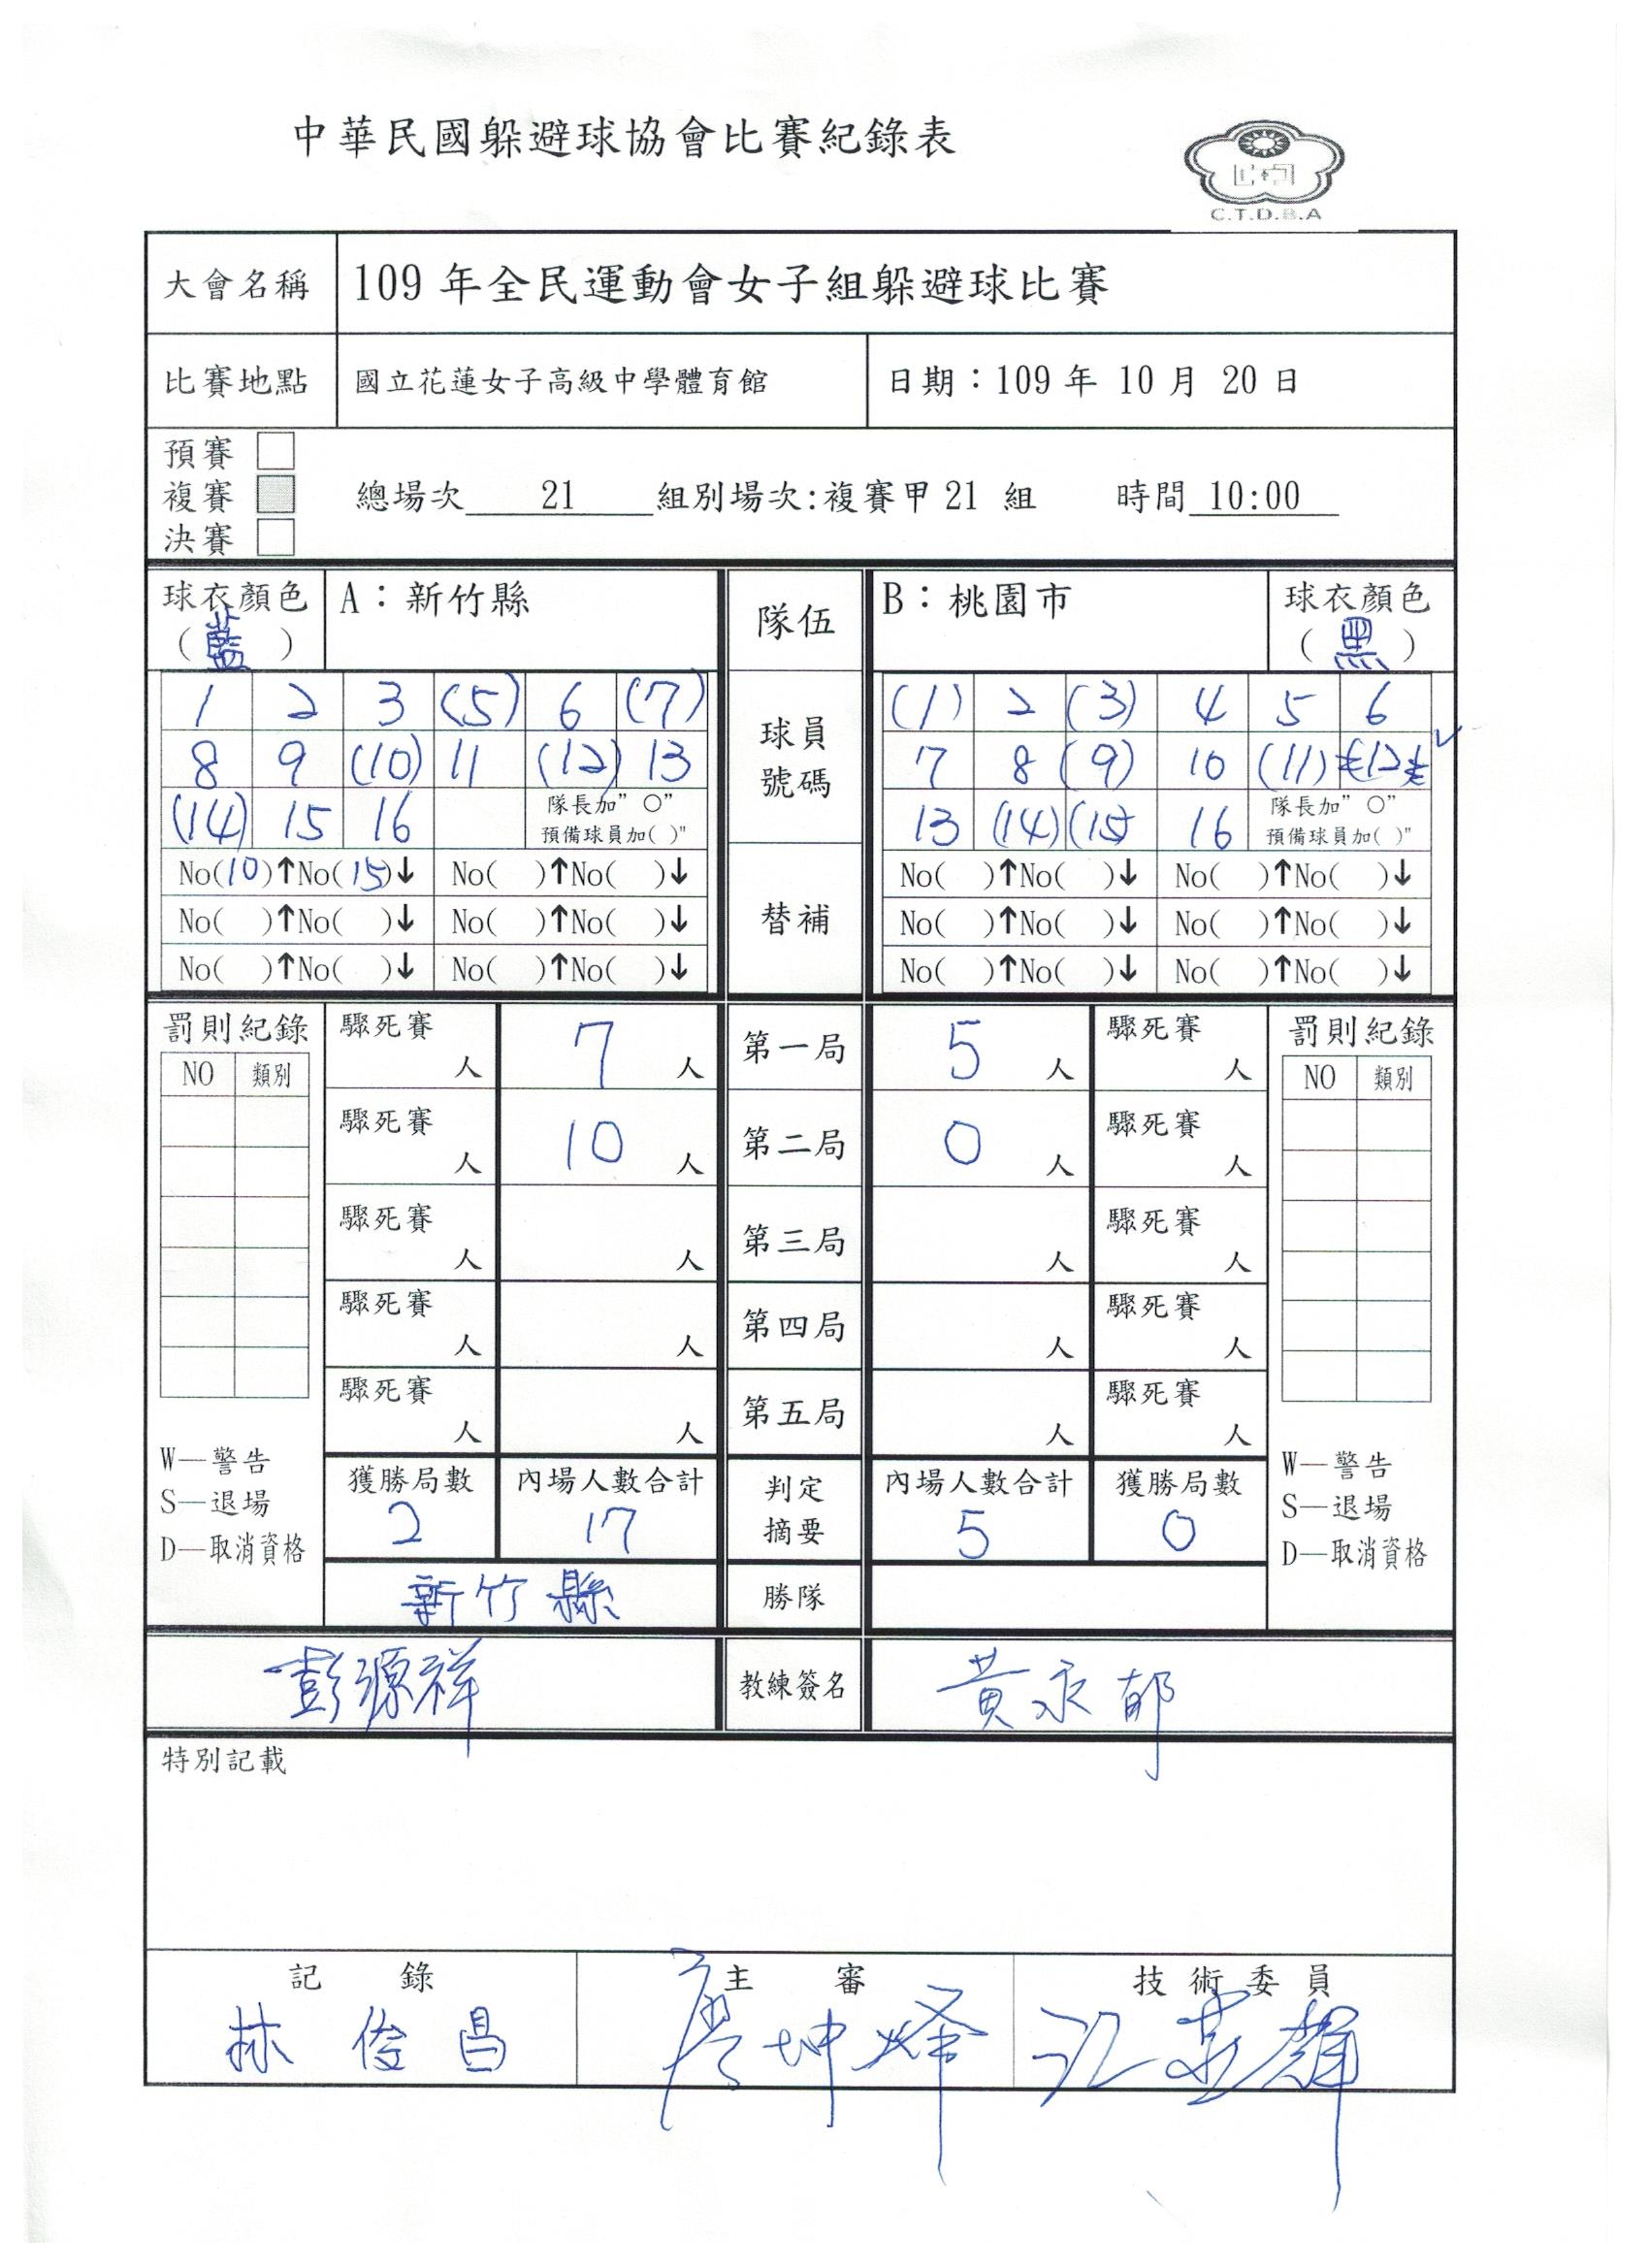 中華民國躲避球協會比賽紀錄表
C.T.D.B.A
大會名稱 109 年全民運動會女子組躲避球比賽
比賽地點 國立花蓮女子高級中學體育館 日期：109 年 10 月 20 日
預賽
複賽 總場次 21 組別場次:複賽甲 21 組 時間 10:00
決賽
球衣顏色 A：新竹縣 隊伍 B：桃園市 球衣顏色
（藍） （黑）
1 2 3 (5) 6 (7) 球員 (1) 2 (3) 4 5 6
8 9 (10) 11 (12) 13 號碼 7 8 (9) 10 (11) 12
(14) 15 16 隊長加” ○” 13 (14) (15) 16 隊長加” ○”
預備球員加( )" 預備球員加( )"
No(10)↑No(15)↓ No( )↑No( )↓ No( )↑No( )↓ No( )↑No( )↓
No( )↑No( )↓ No( )↑No( )↓ 替補 No( )↑No( )↓ No( )↑No( )↓
No( )↑No( )↓ No( )↑No( )↓ No( )↑No( )↓ No( )↑No( )↓
罰則紀錄 驟死賽 人 7 人 第一局 5 人 驟死賽 人 罰則紀錄
NO 類別 NO 類別
驟死賽 人 10 人 第二局 0 人 驟死賽 人
驟死賽 人 人 第三局 人 驟死賽 人
驟死賽 人 人 第四局 人 驟死賽 人
驟死賽 人 人 第五局 人 驟死賽 人
W—警告 獲勝局數 內場人數合計 判定 內場人數合計 獲勝局數 W—警告
S—退場 2 17 摘要 5 0 S—退場
D—取消資格 D—取消資格
新竹縣 勝隊
彭源祥 教練簽名 黃永郁
特別記載
記 錄 主 審 技術委員
林俊昌 廖坤烽